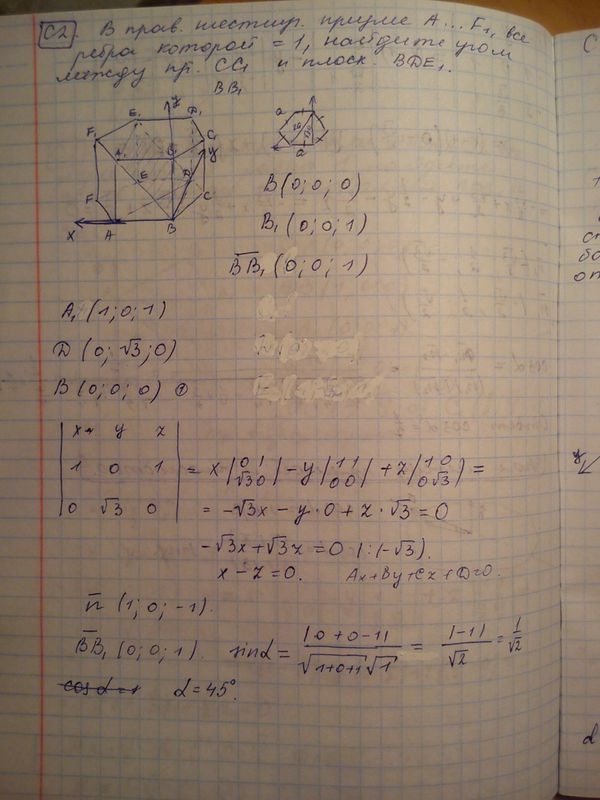 C2. В прав. шестиуг. призме A...F₁, все
ребра которой = 1, найдите угол
между пр. CC₁ и плоск. BDE₁.
BB₁
y
E₁ D₁
F₁ A₁ B₁ C₁ y
F E D C
x A B
a
a
B(0; 0; 0)
B₁(0; 0; 1)
BB₁(0; 0; 1)
A₁(1; 0; 1)
D(0; √3; 0)
B(0; 0; 0)
|x y z|
|1 0 1| = x |0 1| - y |1 1| + z |1 0| =
|0 √3 0| |√3 0| |0 0| |0 √3|
= -√3x - y·0 + z·√3 = 0
-√3x + √3z = 0 |:(-√3).
x - z = 0. Ax + By + Cz + D = 0.
n (1; 0; -1).
BB₁(0; 0; 1). sinα = |0+0-1| / √1+0+1 √1 = |-1| / √2 = 1/√2
cos α = α = 45°.